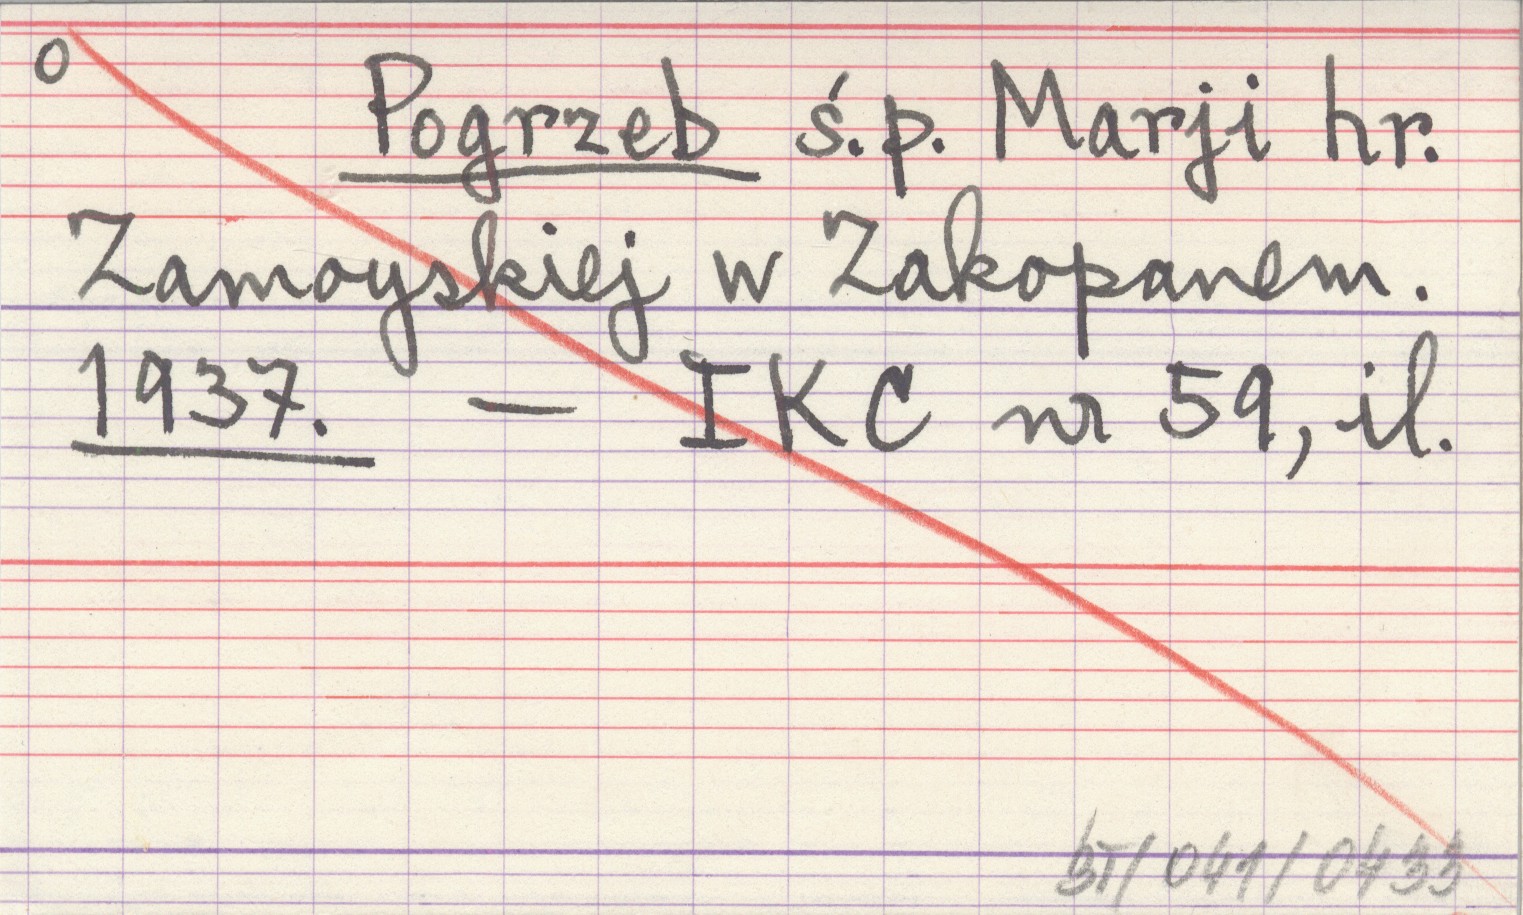 o
Pogrzeb ś.p. Marji hr.
Zamoyskiej w Zakopanem.
1937. — IKC nr 59, il.
BT/041/0433